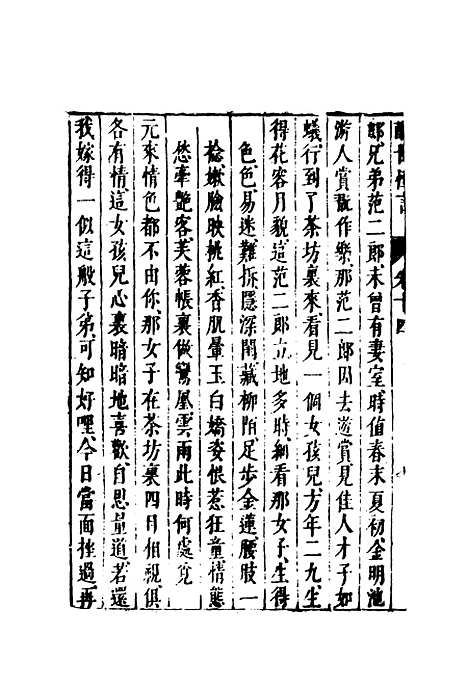 醒世恒言 卷十四
郎兄弟范二郎未曾有妻室時值春末夏初金明池
游人賞翫作樂那范二郎因去遊賞見佳人才子如
蟻行到了茶坊裏來看見一個女孩兒方年二九生
得花容月貌這范二郎立地多時細看那女子生得
色色易迷難拆隱深閨藏柳陌足步金蓮腰肢一
捻嫩臉映桃紅香肌暈玉白嬌姿恨惹狂童情態
愁牽艷客芙蓉帳裏做鸞凰雲雨此時何處覓
元來情色都不由你那女子在茶坊裏四目相視俱
各有情這女孩兒心裏暗暗地喜歡自思量道若還
我嫁得一似這般子弟可知好哩今日當面挫過再